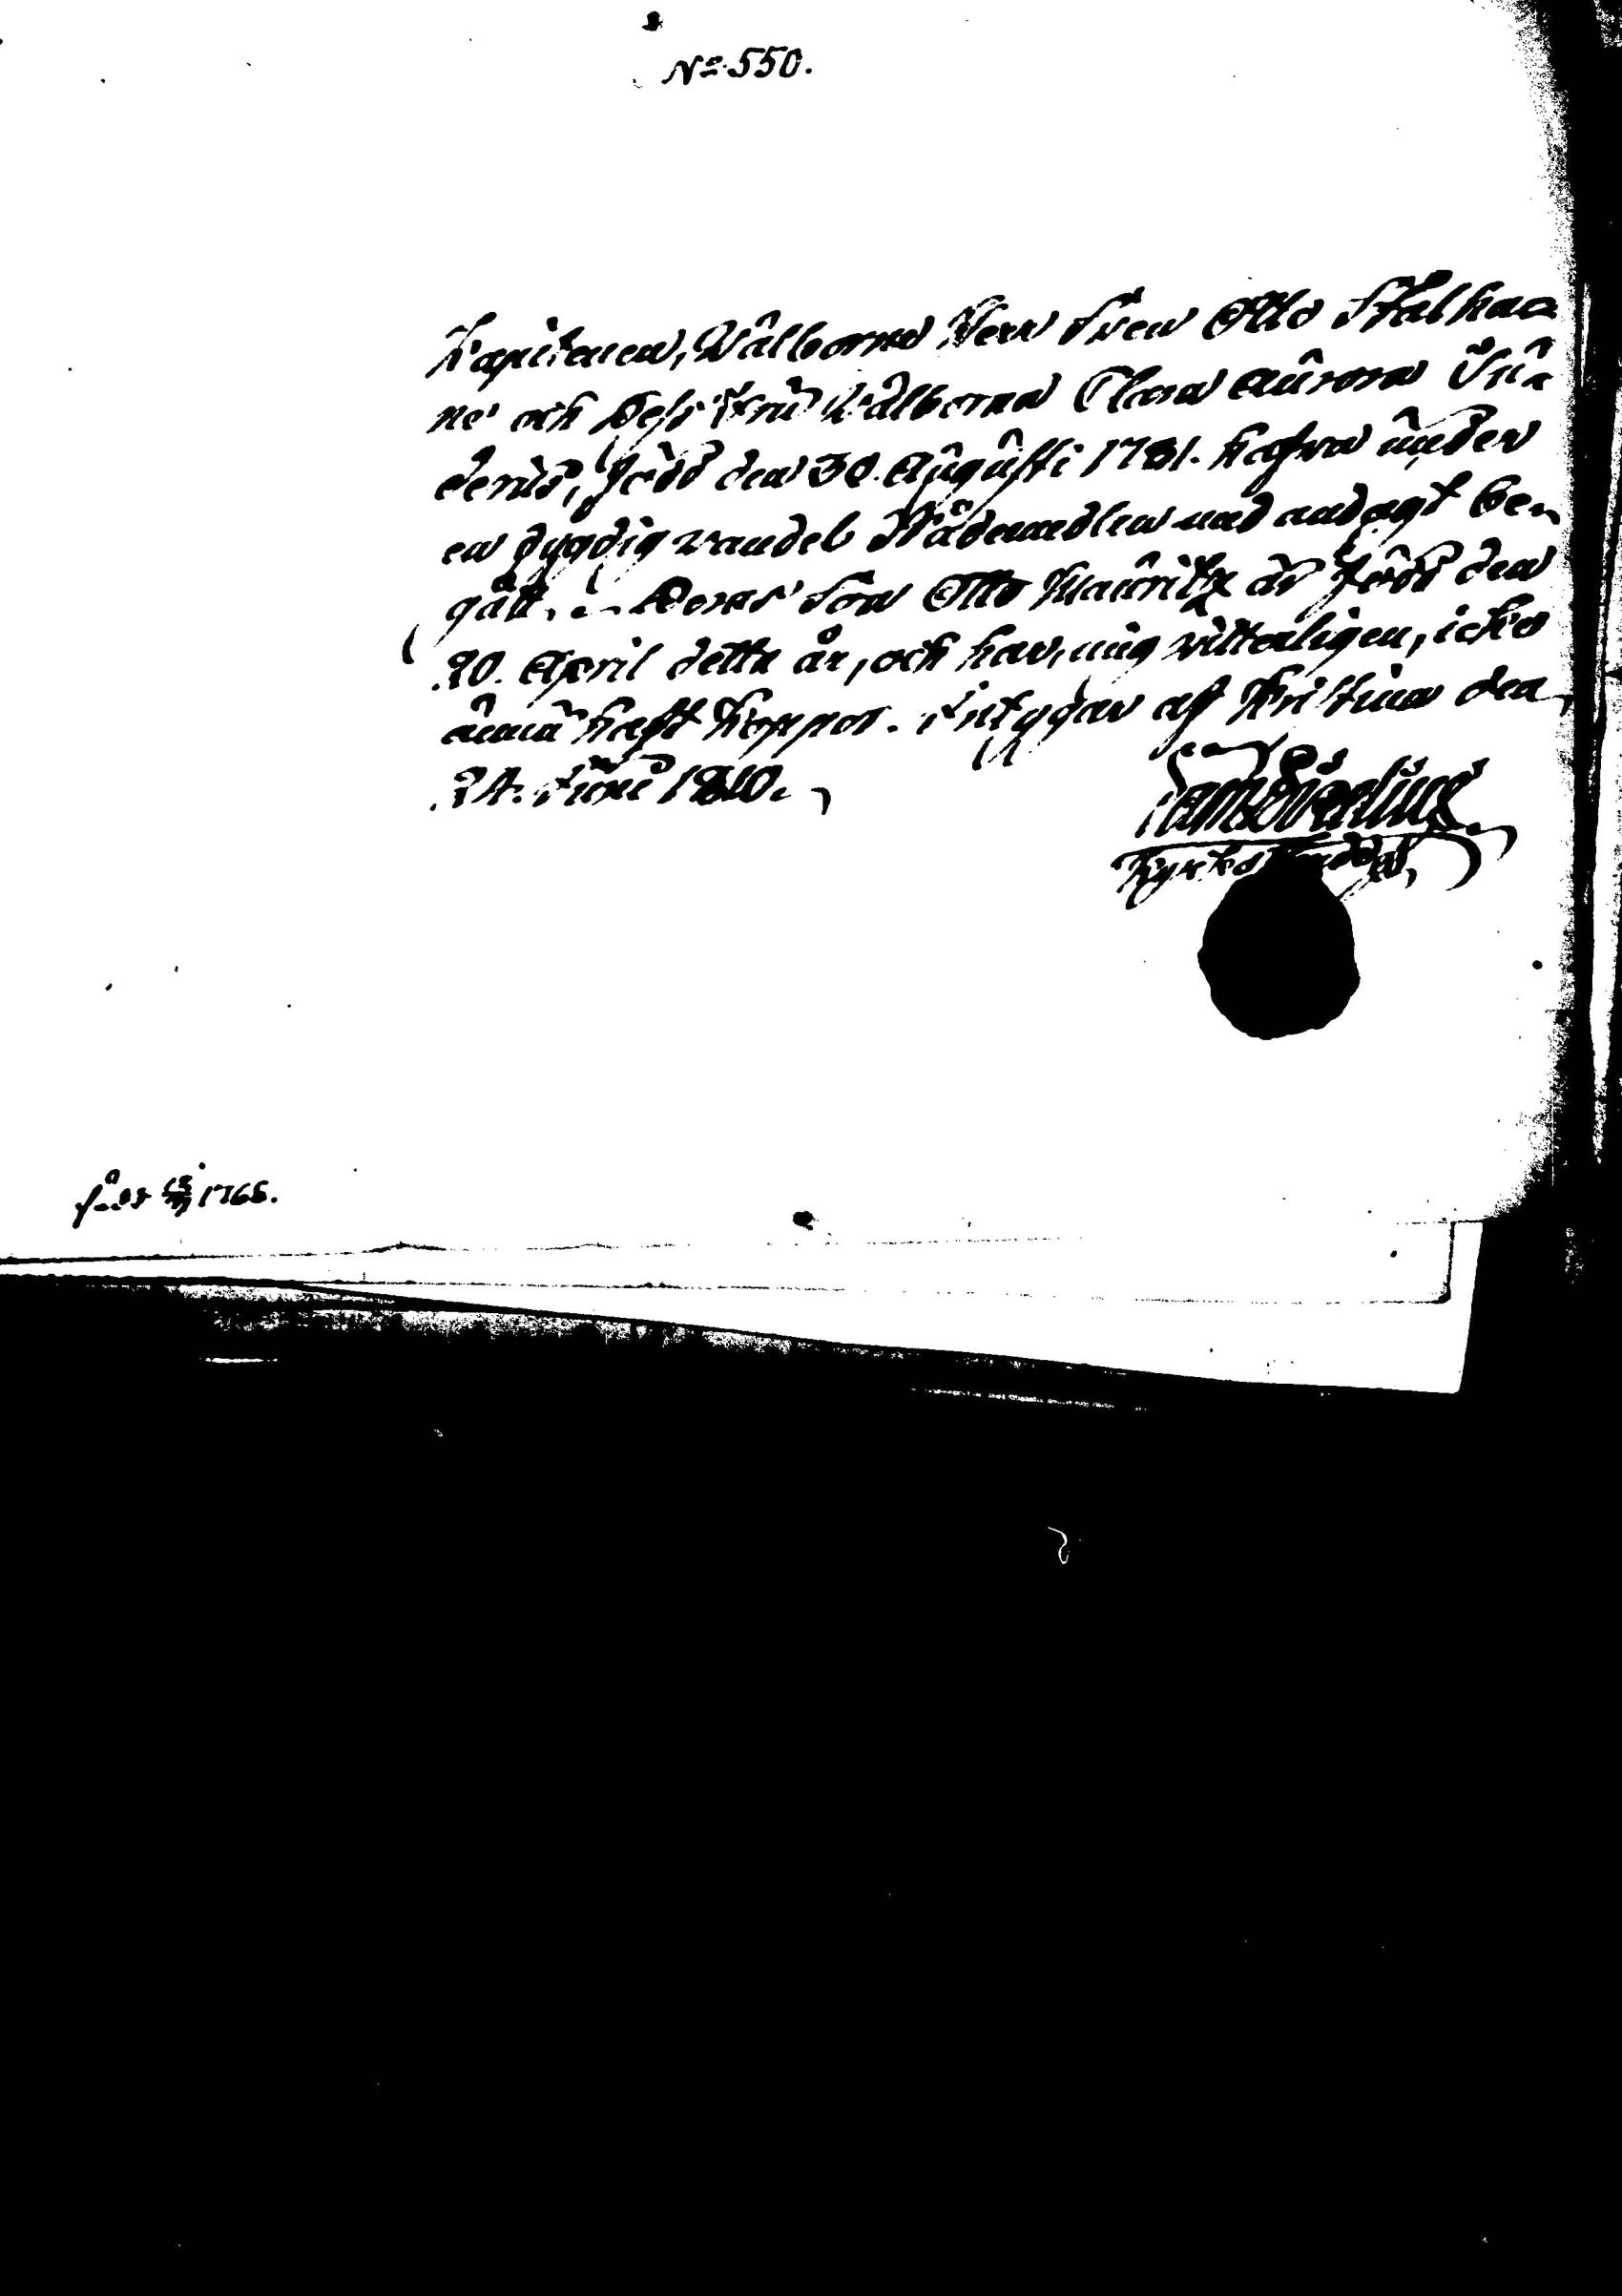 No. 550.
Kapitenen, Välborne Herr Sven Otto Stålha⸗
ne och Dess Fru Välborna Clara Aurora
född den 30. Augusti 1781. hafva under
en dygdig vandel Nådemedlen med andagt be⸗
gått. Deras Son Otto Mauritz är född den
20. April detta år, och har, mig vitterligen, icke
ännu haft koppor. Intygar af Kristina den
24. Juni 1810.
född 1765.